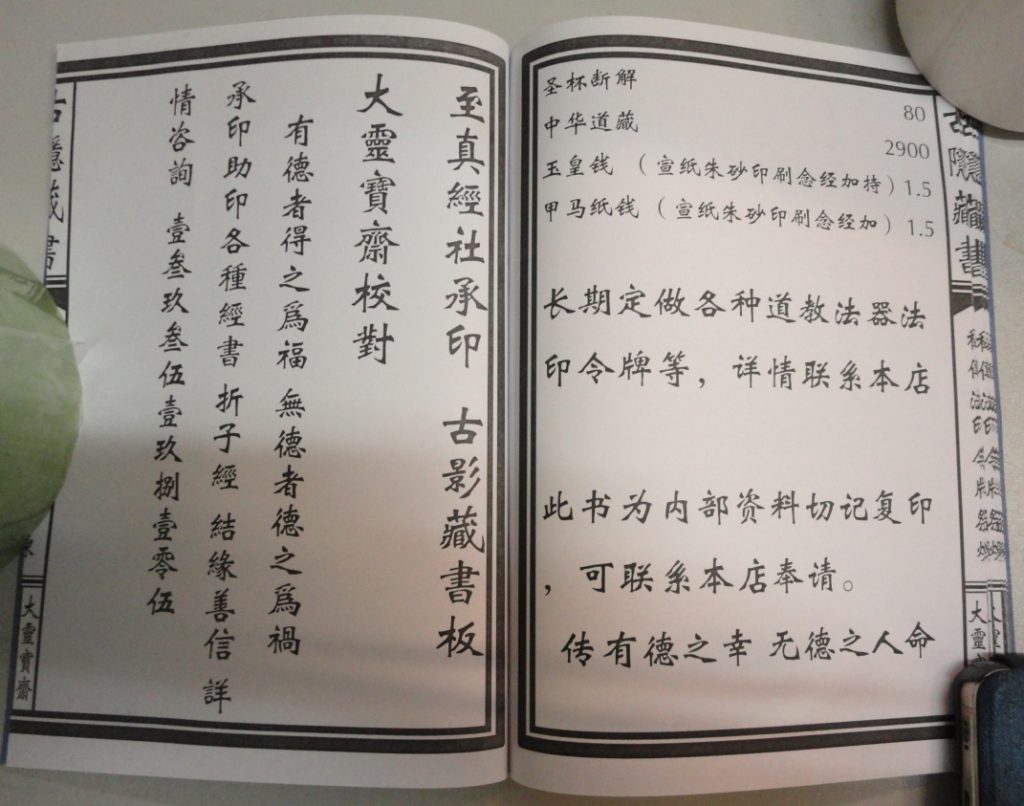 至真經社承印 古影藏書板
大靈寶齋校對
有德者得之爲福 無德者德之爲禍
承印助印各種經書 折子經 結緣善信 詳
情咨詢 壹叁玖叁伍壹玖捌壹零伍
隱藏書
大靈寶齋
圣杯断解 80
中华道藏 2900
玉皇钱 （宣纸朱砂印刷念经加持）1.5
甲马纸钱 （宣纸朱砂印刷念经加）1.5
长期定做各种道教法器法
印令牌等，详情联系本店
此书为内部资料切记复印
，可联系本店奉请。
传有德之幸 无德之人命
隱藏書
大靈